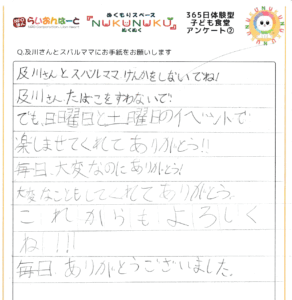 らいおんはーと
ぬくもりスペース
NUKUNUKU
ぬくぬく
365日体験型
子ども食堂
アンケート②
Q.及川さんとスバルママにお手紙をお願いします
及川さんとスバルママけんかをしないでね!
及川さんたばこをすわないで
でも、日曜日と土曜日のイベントで
楽しませてくれてありがとう!!
毎日、大変なのにありがとう!
大変なこともしてくれてありがとう。
これからもよろしく
ね!!!
毎日、ありがとうございました。